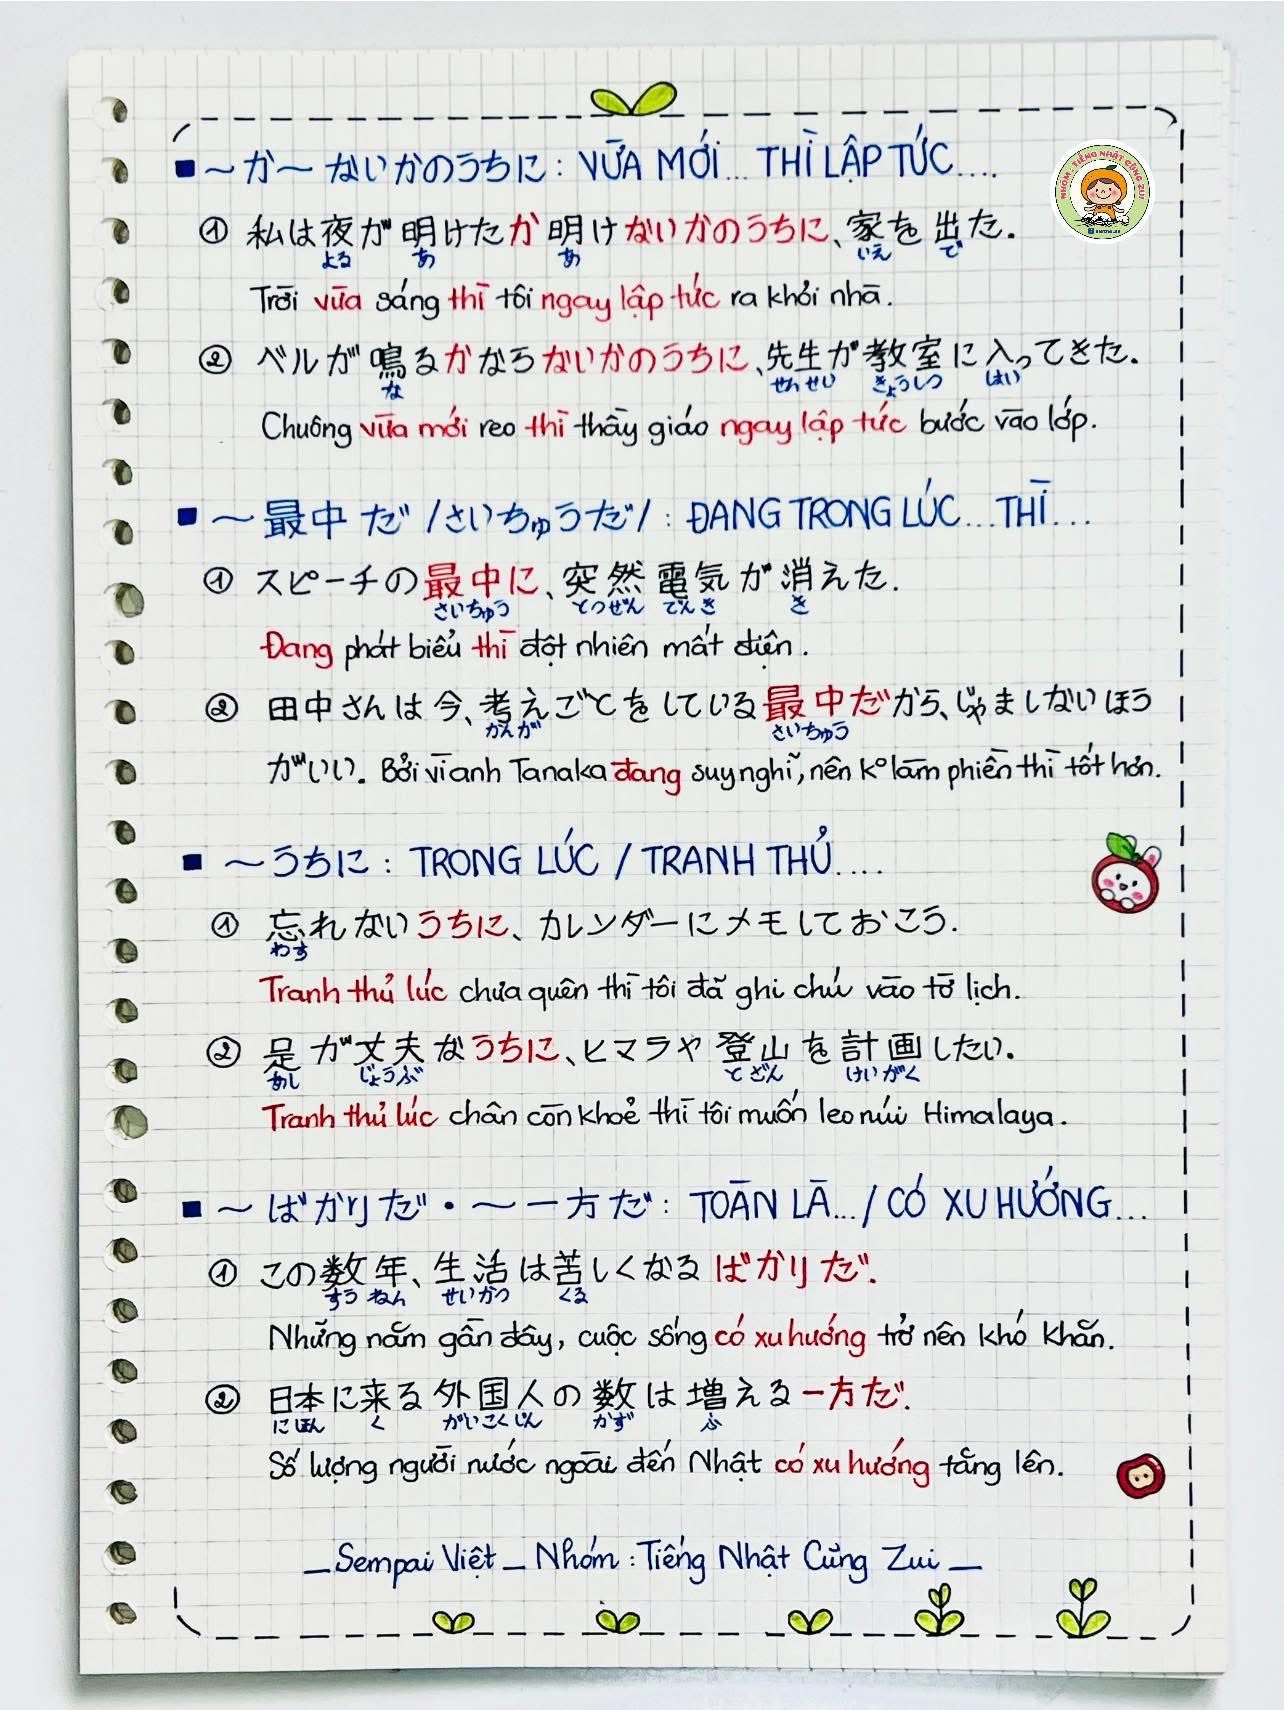 ■ ～か～ないかのうちに : VỪA MỚI... THÌ LẬP TỨC....
NHÓM - TIẾNG NHẬT CÙNG ZUI
① 私は夜が明けたか明けないかのうちに、家を出た.
よる あ あ いえ で
Trời vừa sáng thì tôi ngay lập tức ra khỏi nhà.
② ベルが鳴るかならないかのうちに、先生が教室に入ってきた.
な せんせい きょうしつ はい
Chuông vừa mới reo thì thầy giáo ngay lập tức bước vào lớp.
■ ～最中だ /さいちゅうだ/ : ĐANG TRONG LÚC...THÌ...
① スピーチの最中に、突然電気が消えた.
さいちゅう とつぜん でんき き
Đang phát biểu thì đột nhiên mất điện.
② 田中さんは今、考えごとをしている最中だから、じゃましないほう
かんが さいちゅう
がいい. Bởi vì anh Tanaka đang suy nghĩ, nên kº làm phiền thì tốt hơn.
■ ～うちに : TRONG LÚC / TRANH THỦ....
① 忘れないうちに、カレンダーにメモしておこう.
わす
Tranh thủ lúc chưa quên thì tôi đã ghi chú vào tờ lịch.
② 足が丈夫なうちに、ヒマラヤ登山を計画したい.
あし じょうぶ とざん けいがく
Tranh thủ lúc chân còn khoẻ thì tôi muốn leo núi Himalaya.
■ ～ばかりだ・～一方だ : TOÀN LÀ.../ CÓ XU HƯỚNG...
① この数年、生活は苦しくなるばかりだ.
すうねん せいかつ くる
Những năm gần đây, cuộc sống có xu hướng trở nên khó khăn.
② 日本に来る外国人の数は増える一方だ.
にほん く がいこくじん かず ふ
Số lượng người nước ngoài đến Nhật có xu hướng tăng lên.
_Sempai Việt _ Nhóm : Tiếng Nhật Cùng Zui _